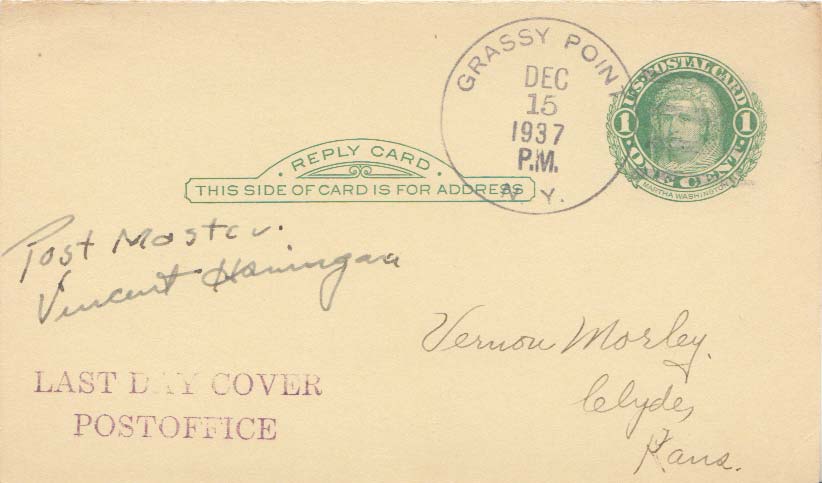 GRASSY POINT
DEC
15
1937
P.M.
N. Y.
U.S. POSTAL CARD
1 1
ONE CENT
MARTHA WASHINGTON
REPLY CARD
THIS SIDE OF CARD IS FOR ADDRESS
Post Master.
Vincent
Vernon Morley.
Clyde,
Kans.
LAST DAY COVER
POSTOFFICE